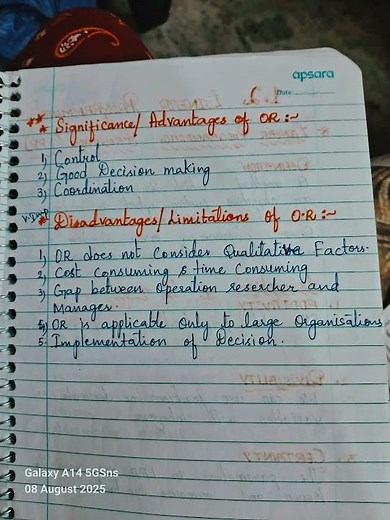 apsara
Date
** Significance/ Advantages of OR :~
1) Control
2) Good Decision making
3) Coordination
* Disadvantages/Limitations of O.R :~
1) OR does not Consider Qualitative Factors.
2) Cost Consuming & time Consuming
3) Gap between Operation resercher and
Manager.
4) OR is applicable Only to large Organisations
5. Implementation of Decision.
Galaxy A14 5GSns
08 August 2025